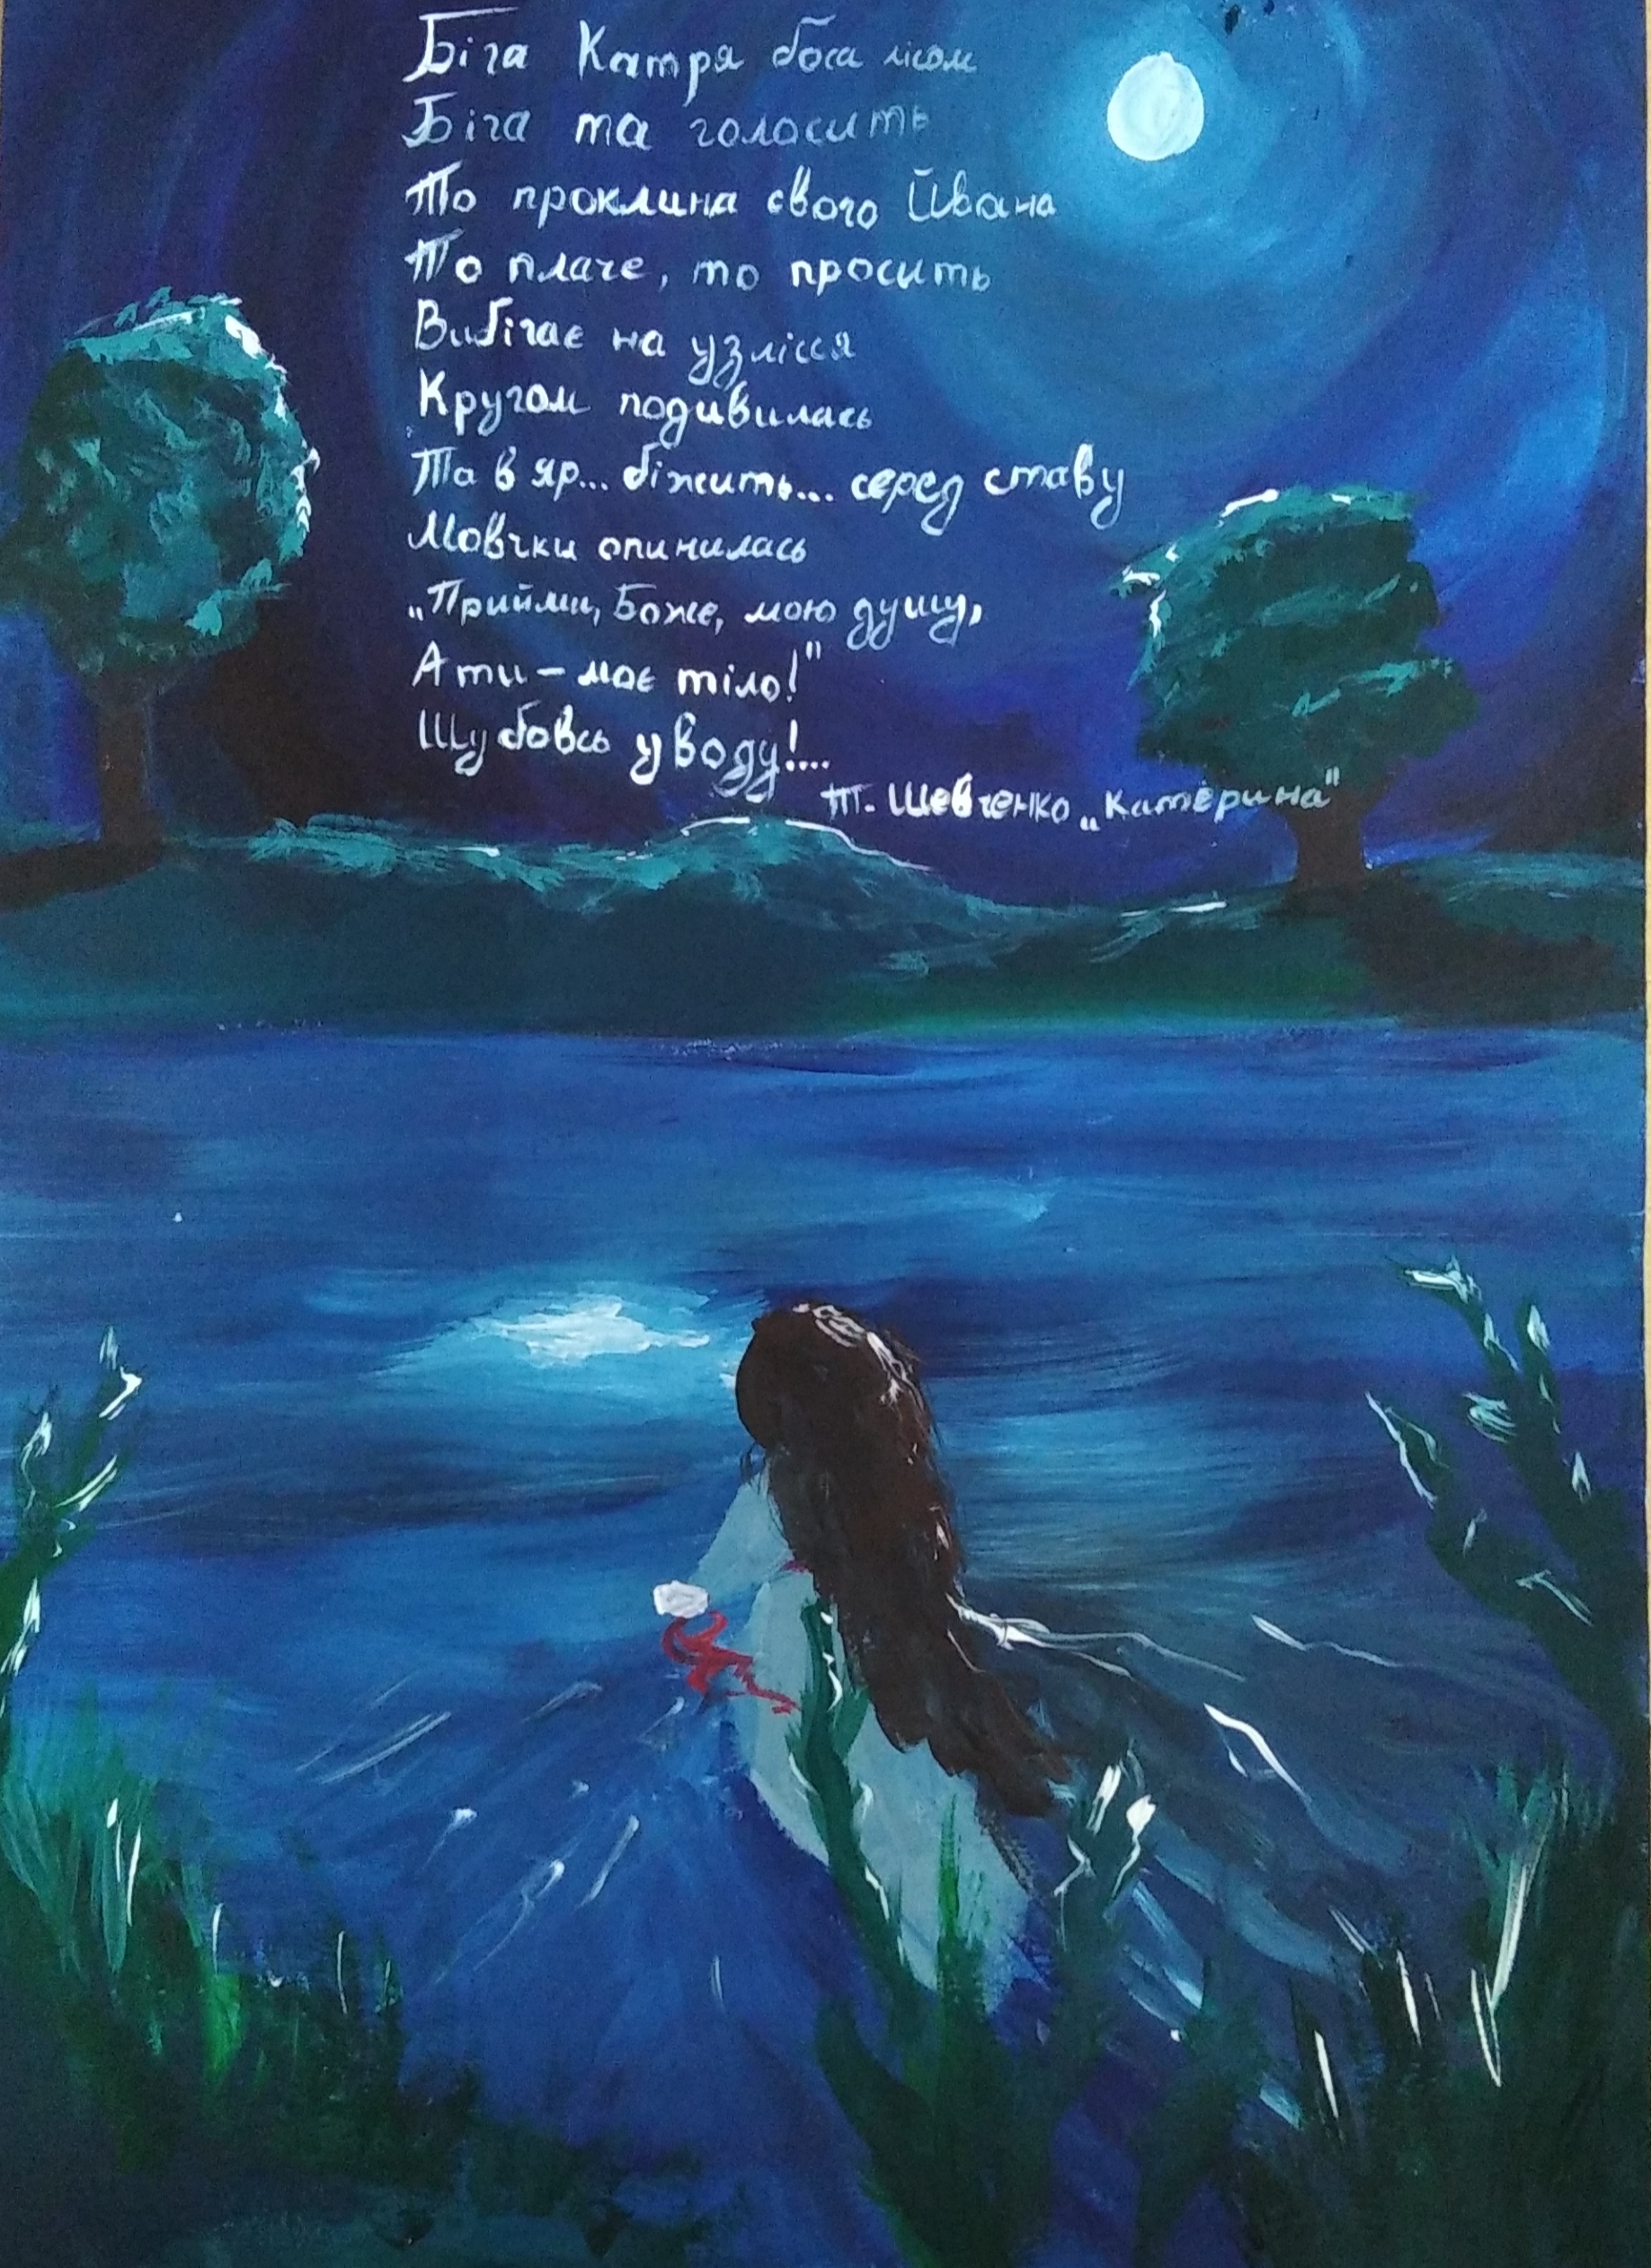 Біга Катря боса лісом
Біга та голосить
То проклина свого Йвана
То плаче, то просить
Вибігає на узлісся
Кругом подивилась
Та в яр... біжить... серед ставу
Мовчки опинилась
„Прийми, Боже, мою душу,
А ти – моє тіло!"
Шубовсь у воду!...
Т. Шевченко „Катерина"